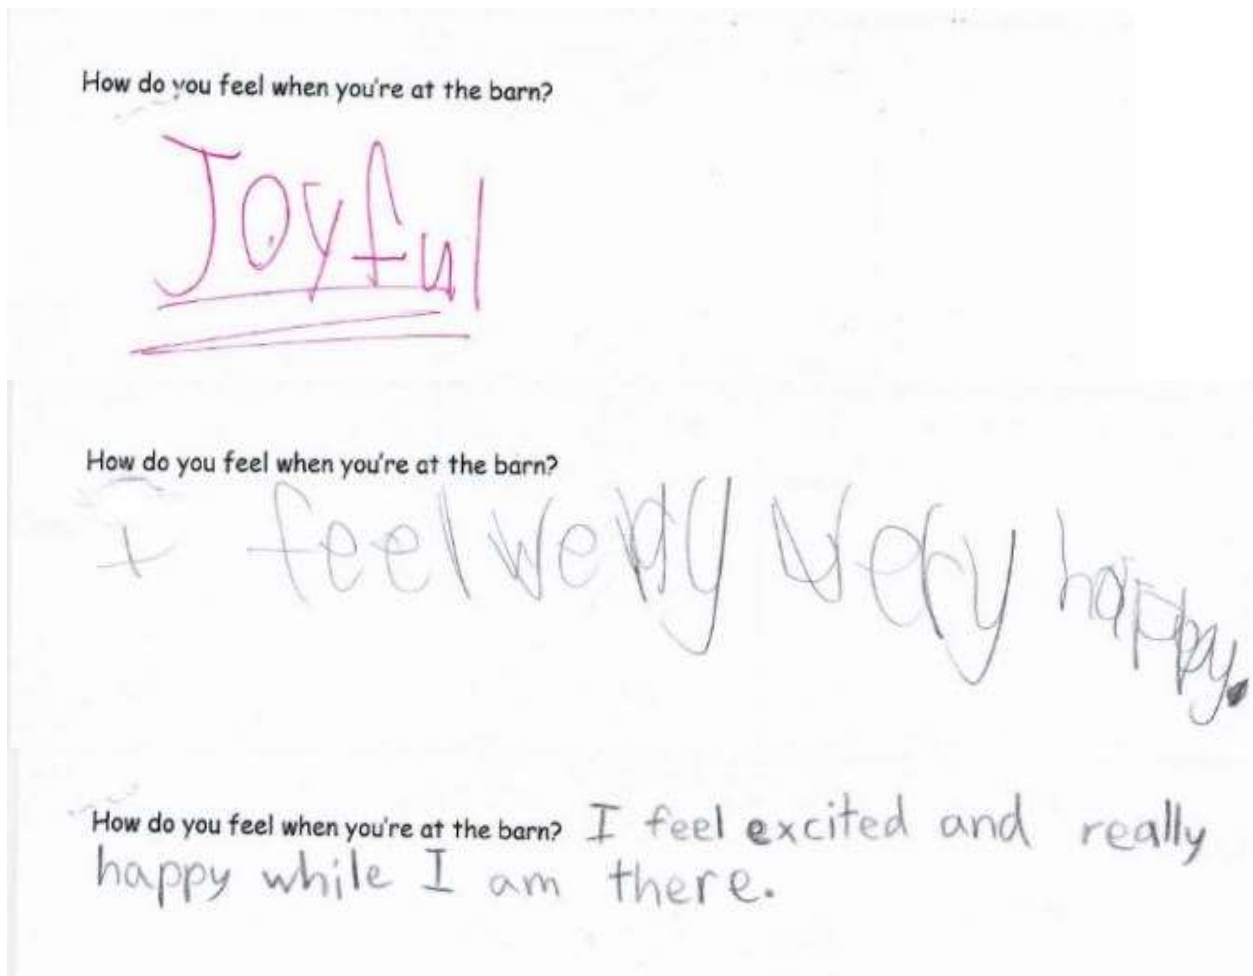 How do you feel when you're at the barn?
Joyful
How do you feel when you're at the barn?
I feel very very happy.
How do you feel when you're at the barn? I feel excited and really
happy while I am there.